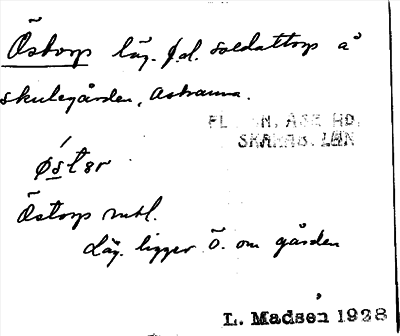 Östorp läg. f.d. soldattorp å
skulegården, Astranna.
FL N, ASE HD.
SKARAB. LÄN
östər
Östorp mbl.
Läg. ligger Ö. om gården
L. Madsén 1928